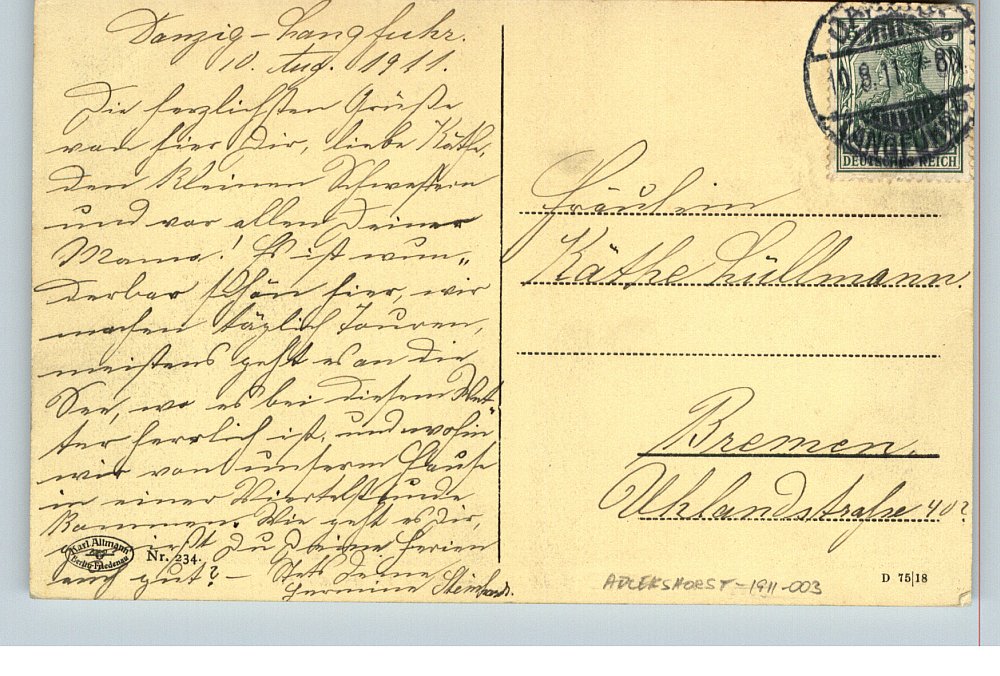 Danzig-Langfuhr.
10. Aug. 1911.
Die herzlichsten Grüße
von hier Dir, liebe Käthe,
den kleinen Schwestern
und vor allen Deiner
Mama! Es ist wun„
derbar schön hier, wir
machen täglich Touren,
meistens geht es an die
See, wo es bei diesem Wet„
ter herrlich ist, und wohin
wir von unserm Hause
in einer Viertelstunde
kommen. Wie geht es Dir,
Du Deine Ferien
auch gut? – Stets Deine
Hermine
Karl Altmann
Berlin-Friedenau
Nr. 234.
5
10.8.11.
LANGFUHR
DEUTSCHES REICH
Fräulein
Käthe Lüllmann.
Bremen.
Uhlandstraße 40?
ADLERSHORST-1911-003
D 75|18